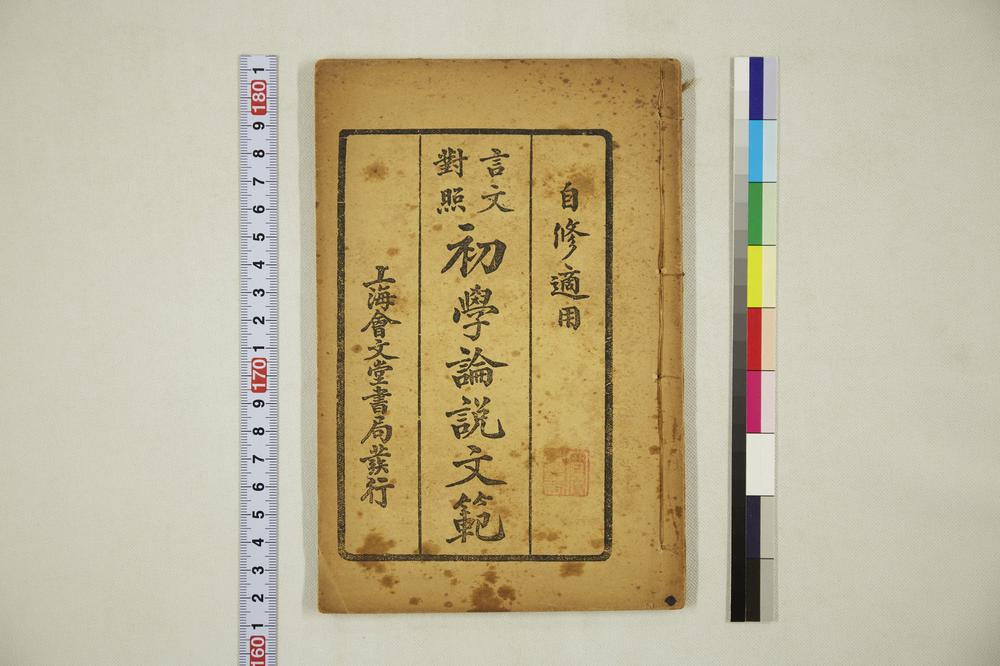 自修適用
言文對照
初學論説文範
上海會文堂書局發行
1
180
9
8
7
6
5
4
3
2
1
170
9
8
7
6
5
4
3
2
1
160